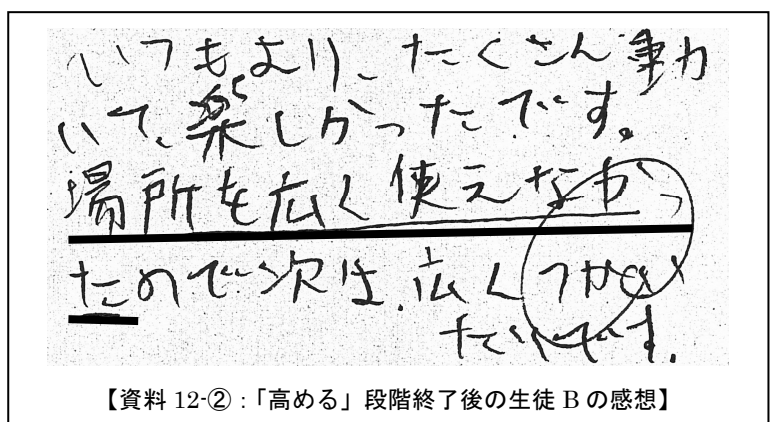 いつもより、たくさん動
いて、楽しかったです。
場所を広く使えなかっ
たので次は、広くつかい
たいです。
【資料 12-②：「高める」段階終了後の生徒 B の感想】